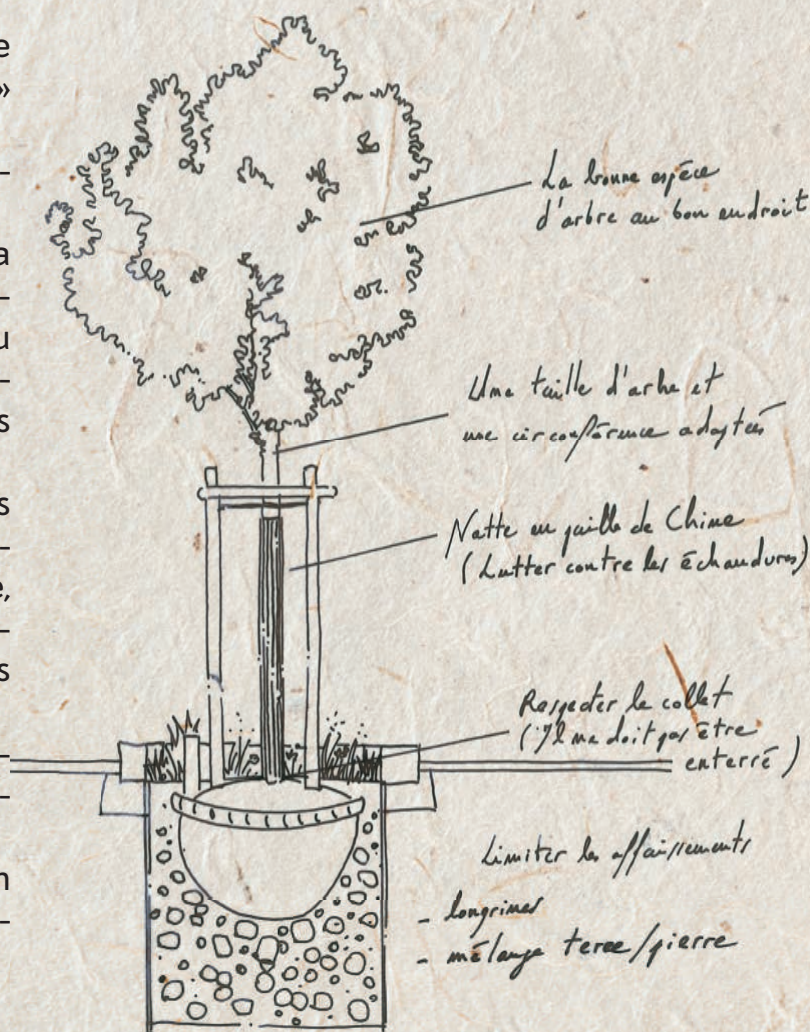 e
»
–
a
–
u
–
s
s
–
e,
–
s
–
–
n
–
La bonne espèce
d'arbre au bon endroit
Une taille d'arbre et
une circonférence adaptées
Natte en paille de Chine
(Lutter contre les échaudures)
Respecter le collet
(Il ne doit pas être
enterré)
Limiter les affaissements
- longrines
- mélange terre/pierre